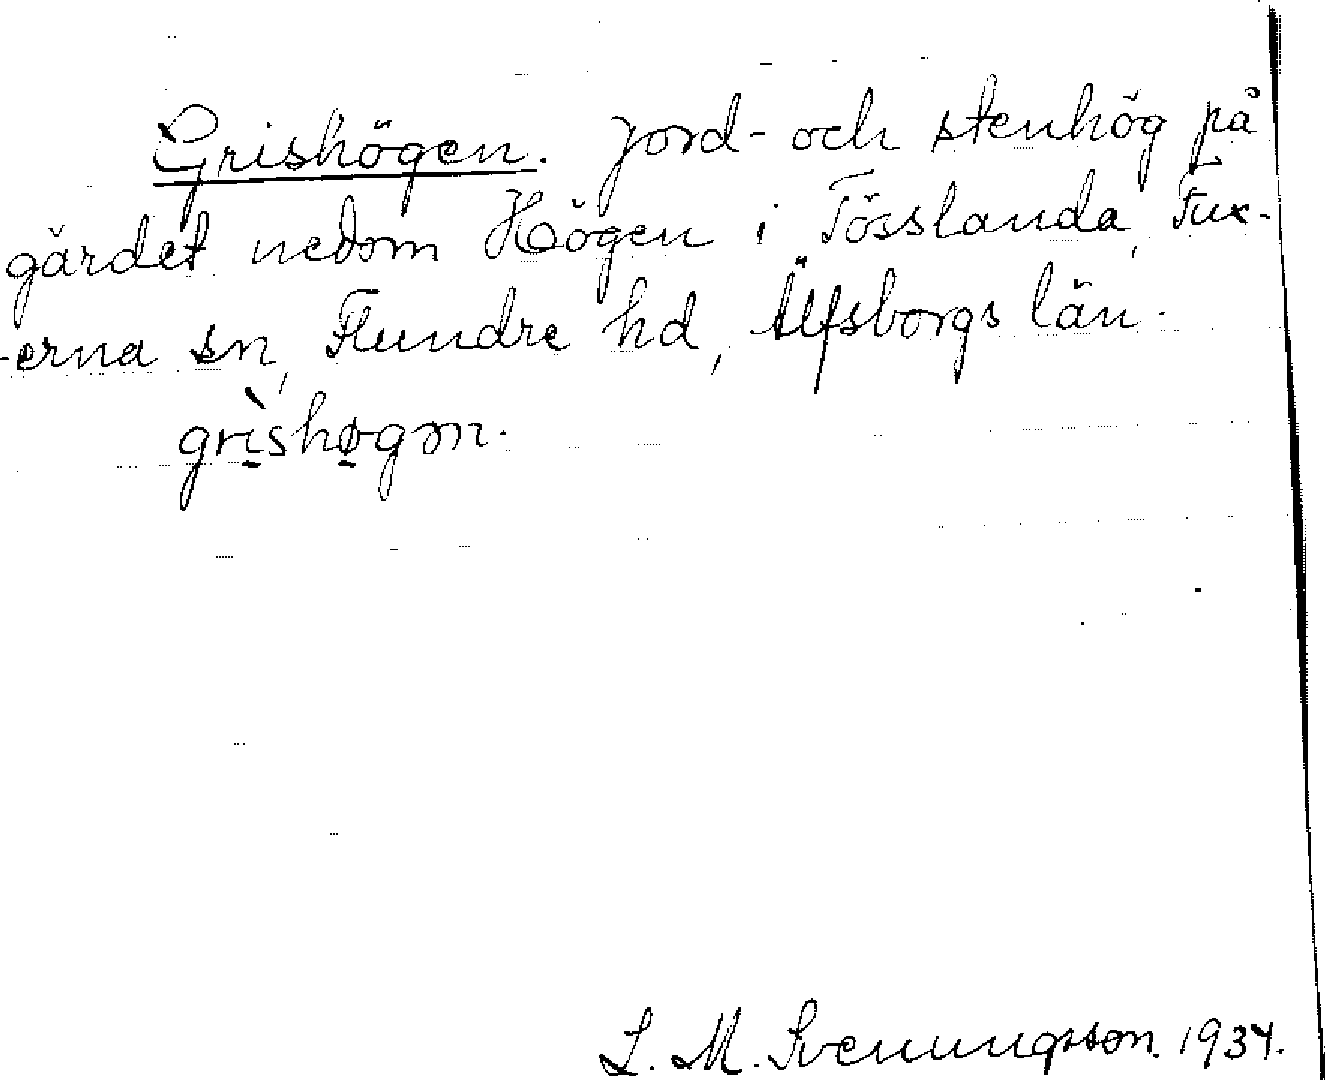 Grishögen. Jord- och stenhög på
gärdet nedom Högen i Tösslanda, Fux-
-erna sn, Flundre hd, Älfsborgs län.
grìshøgən.
L. M. Svenungsson. 1934.